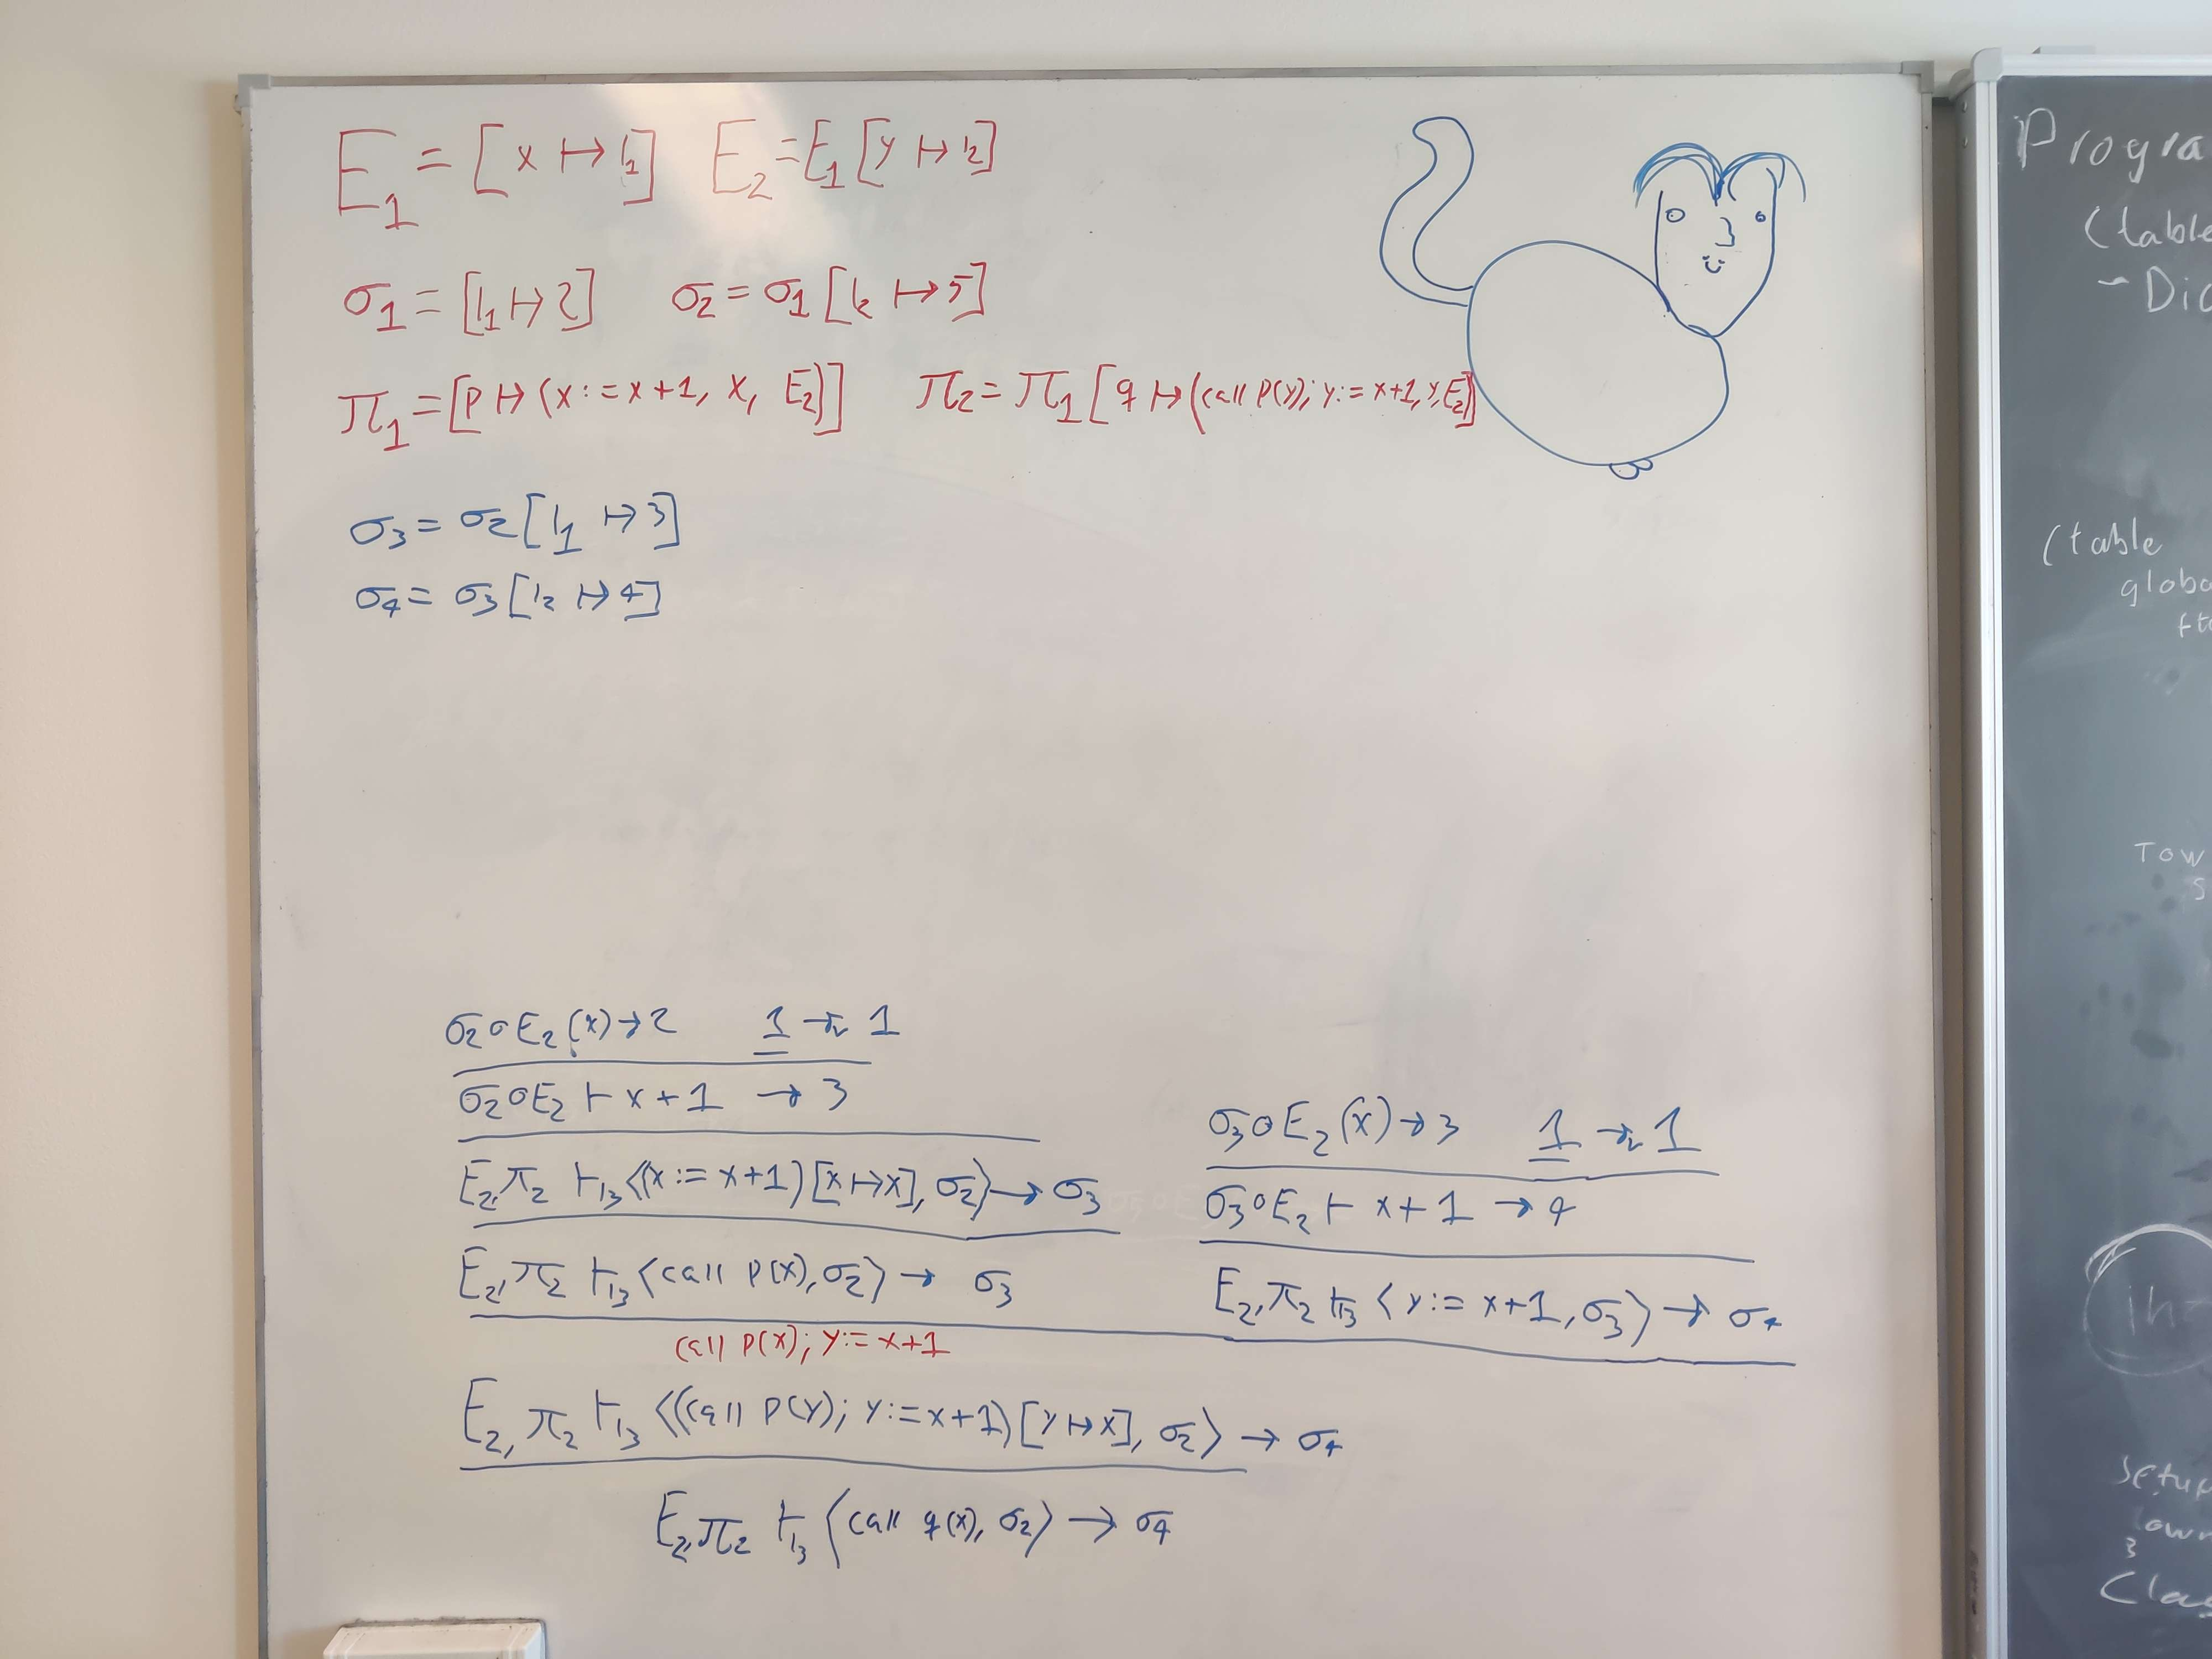 E₁ = [x ↦ l₁] E₂ = E₁[y ↦ l₂]
σ₁ = [l₁ ↦ 2] σ₂ = σ₁[l₂ ↦ 5]
π₁ = [p ↦ (x := x+1, x, E₂)] π₂ = π₁[q ↦ (call p(y); y := x+1, y, E₂)]
σ₃ = σ₂[l₁ ↦ 3]
σ₄ = σ₃[l₂ ↦ 4]
σ₂∘E₂(x) → 2 1 →ᵥ 1
σ₂∘E₂ ⊢ x+1 → 3
E₂, π₂ ⊢₁₃ ⟨(x := x+1)[x ↦ x], σ₂⟩ → σ₃
E₂, π₂ ⊢₁₃ ⟨call p(x), σ₂⟩ → σ₃
σ₃∘E₂(x) → 3 1 →ᵥ 1
σ₃∘E₂ ⊢ x+1 → 4
E₂, π₂ ⊢₁₃ ⟨y := x+1, σ₃⟩ → σ₄
call p(x); y := x+1
E₂, π₂ ⊢₁₃ ⟨(call p(y); y := x+1)[y ↦ x], σ₂⟩ → σ₄
E₂, π₂ ⊢₁₃ ⟨call q(x), σ₂⟩ → σ₄
Progra
(table
- Dic
(table
globa
Tow
S
Setup
3
Clas